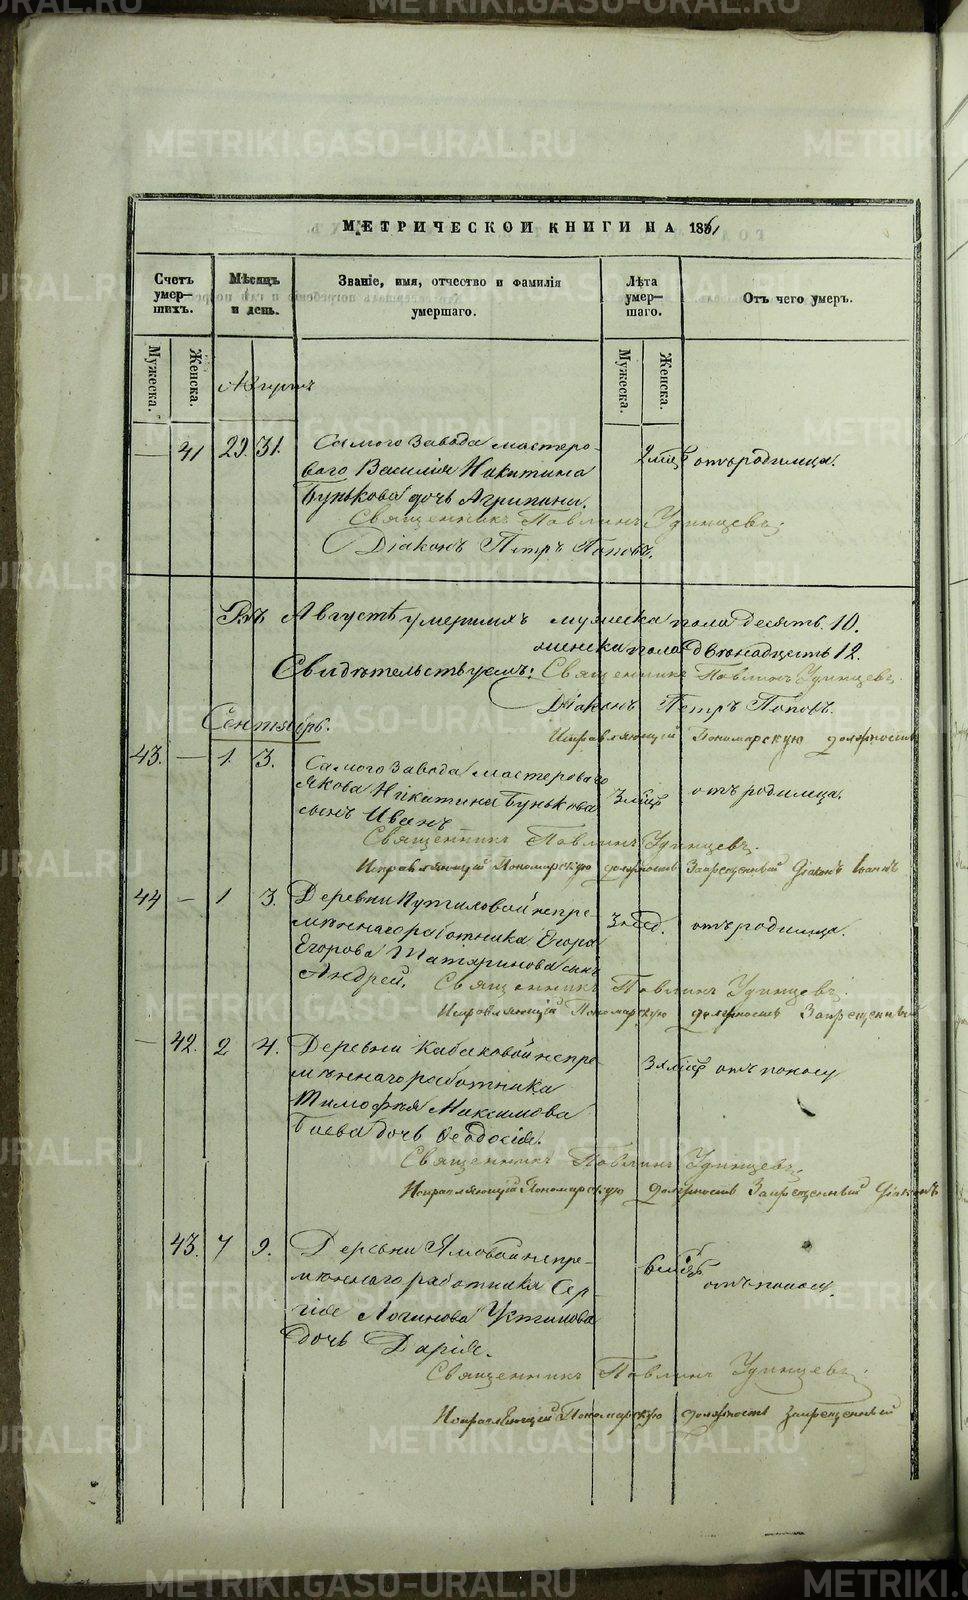 METRIKI.GASO-URAL.RU
МЕТРИЧЕСКОЙ КНИГИ НА 1861
Счетъ умер-ших.
Мѣсяцъ и день.
Званіе, имя, отчество и фамилія умершаго.
Лѣта умер-шаго.
Отъ чего умеръ.
Мужеска.
Женска.
Мужеска.
Женска.
Августъ
— 41 29. 31. Самого Завода мастеро- 2 мѣс. отъ родимца.
ваго Василія Никитина
Бунькова дочь Агрипина.
Священникъ Павлинъ Удинцевъ.
Діаконъ Петръ Поповъ.
Въ Августѣ умершихъ мужеска пола десять 10.
женска пола двѣнадцать 12.
Свидѣтельствуемъ: Священникъ Павлинъ Удинцевъ.
Діаконъ Петръ Поповъ.
Исправляющій Пономарскую должность
Сентябрь.
43. — 1. 3. Самого Завода мастероваго
Якова Никитина Бунькова 3 мѣс. отъ родимца.
сынъ Иванъ
Священникъ Павлинъ Удинцевъ.
Исправляющій Пономарскую должность Запрещенный Діаконъ Іоаннъ
44 — 1 3. Деревни Путиловой непре
мѣннаго работника Егора 3 нед. отъ родимца.
Егорова Татаринова сынъ
Андрей. Священникъ Павлинъ Удинцевъ.
Исправляющій Пономарскую должность Запрещенный
— 42. 2 4. Деревни Кабаковой непре
мѣннаго работника отъ поносу
Тимофея Максимова
Гаева дочь Ѳеодосія.
Священникъ Павлинъ Удинцевъ.
Исправляющій Пономарскую должность Запрещенный Діаконъ
43. 7 9. Деревни Ямовой непре-
мѣннаго работника Сер- 6 мѣс. отъ поносу.
гія Логинова Устинова
дочь Дарія.
Священникъ Павлинъ Удинцевъ.
Исправляющій Пономарскую должность Запрещенный